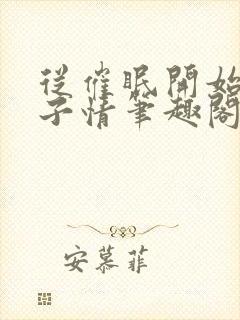 從催眠開始
子情筆趣閣
安慕菲